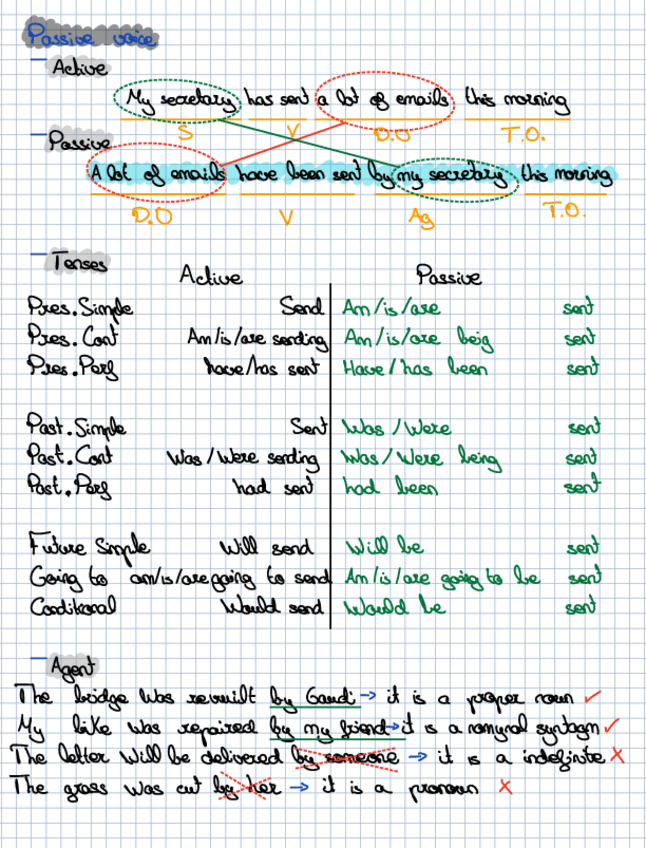 Passive voice
Active
My secretary has sent a lot of emails this morning
S V D.O T.O.
Passive
A lot of emails have been sent by my secretary this morning
D.O V Ag T.O.
Tenses
Active Passive
Pres.Simple Send Am/is/are sent
Pres.Cont Am/is/are sending Am/is/are beig sent
Pres.Perf have/has sent Have/has been sent
Past.Simple Sent Was/Were sent
Past.Cont Was/Were sending Was/Were being sent
Past.Perf had sent had been sent
Future Simple Will send Will be sent
Going to am/is/are going to send Am/is/are going to be sent
Conditional Would send Would be sent
Agent
The bridge was revuilt by Gaudi → it is a proper noun ✓
My bike was repaired by my friend → it is a nomynal syntagm ✓
The letter will be delivered by someone → it is a indefinite X
The grass was cut by her → it is a pronoun X